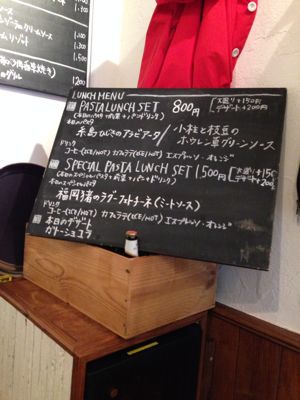 LUNCH MENU
PASTA LUNCH SET 800円 大盛り+150円
デザート+200円
(本日のパスタ+前菜+パン+ドリンク)
本日のパスタ
糸島ひじきのアラビアータ / 小柱と枝豆の
ホウレン草グリーンソース
ドリンク
コーヒー(ICE/HOT) カフェラテ(ICE/HOT) エスプレッソ・オレンジ
SPECIAL PASTA LUNCH SET 1500円 大盛り+150
デザート+200
(本日のスペシャルパスタ+前菜+パン+ドリンク)
本日のスペシャルパスタ
福岡猪のラグーフェットチーネ(ミートソース)
ドリンク
コーヒー(ICE/HOT) カフェラテ(ICE/HOT) エスプレッソ・オレンジ
本日のデザート
ガトーショコラ